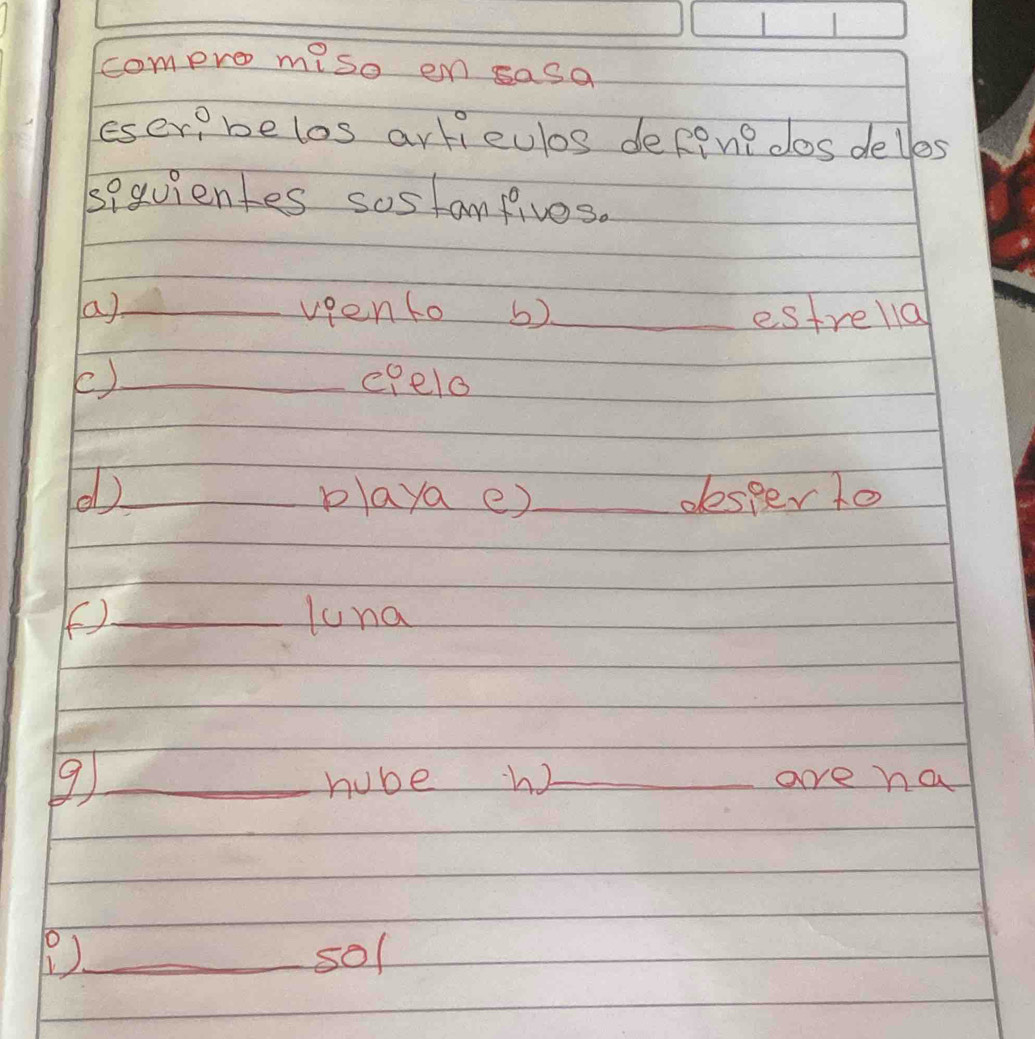 compromiso en sasa
escribe los artieulos definidos de los
siguientes sustantivos.
a)______ viento b)______ estrella
c)______ cielo
d)______ playa e)______ desierto
f)______ luna
g)______ nube h)______ arena
i)______ sol